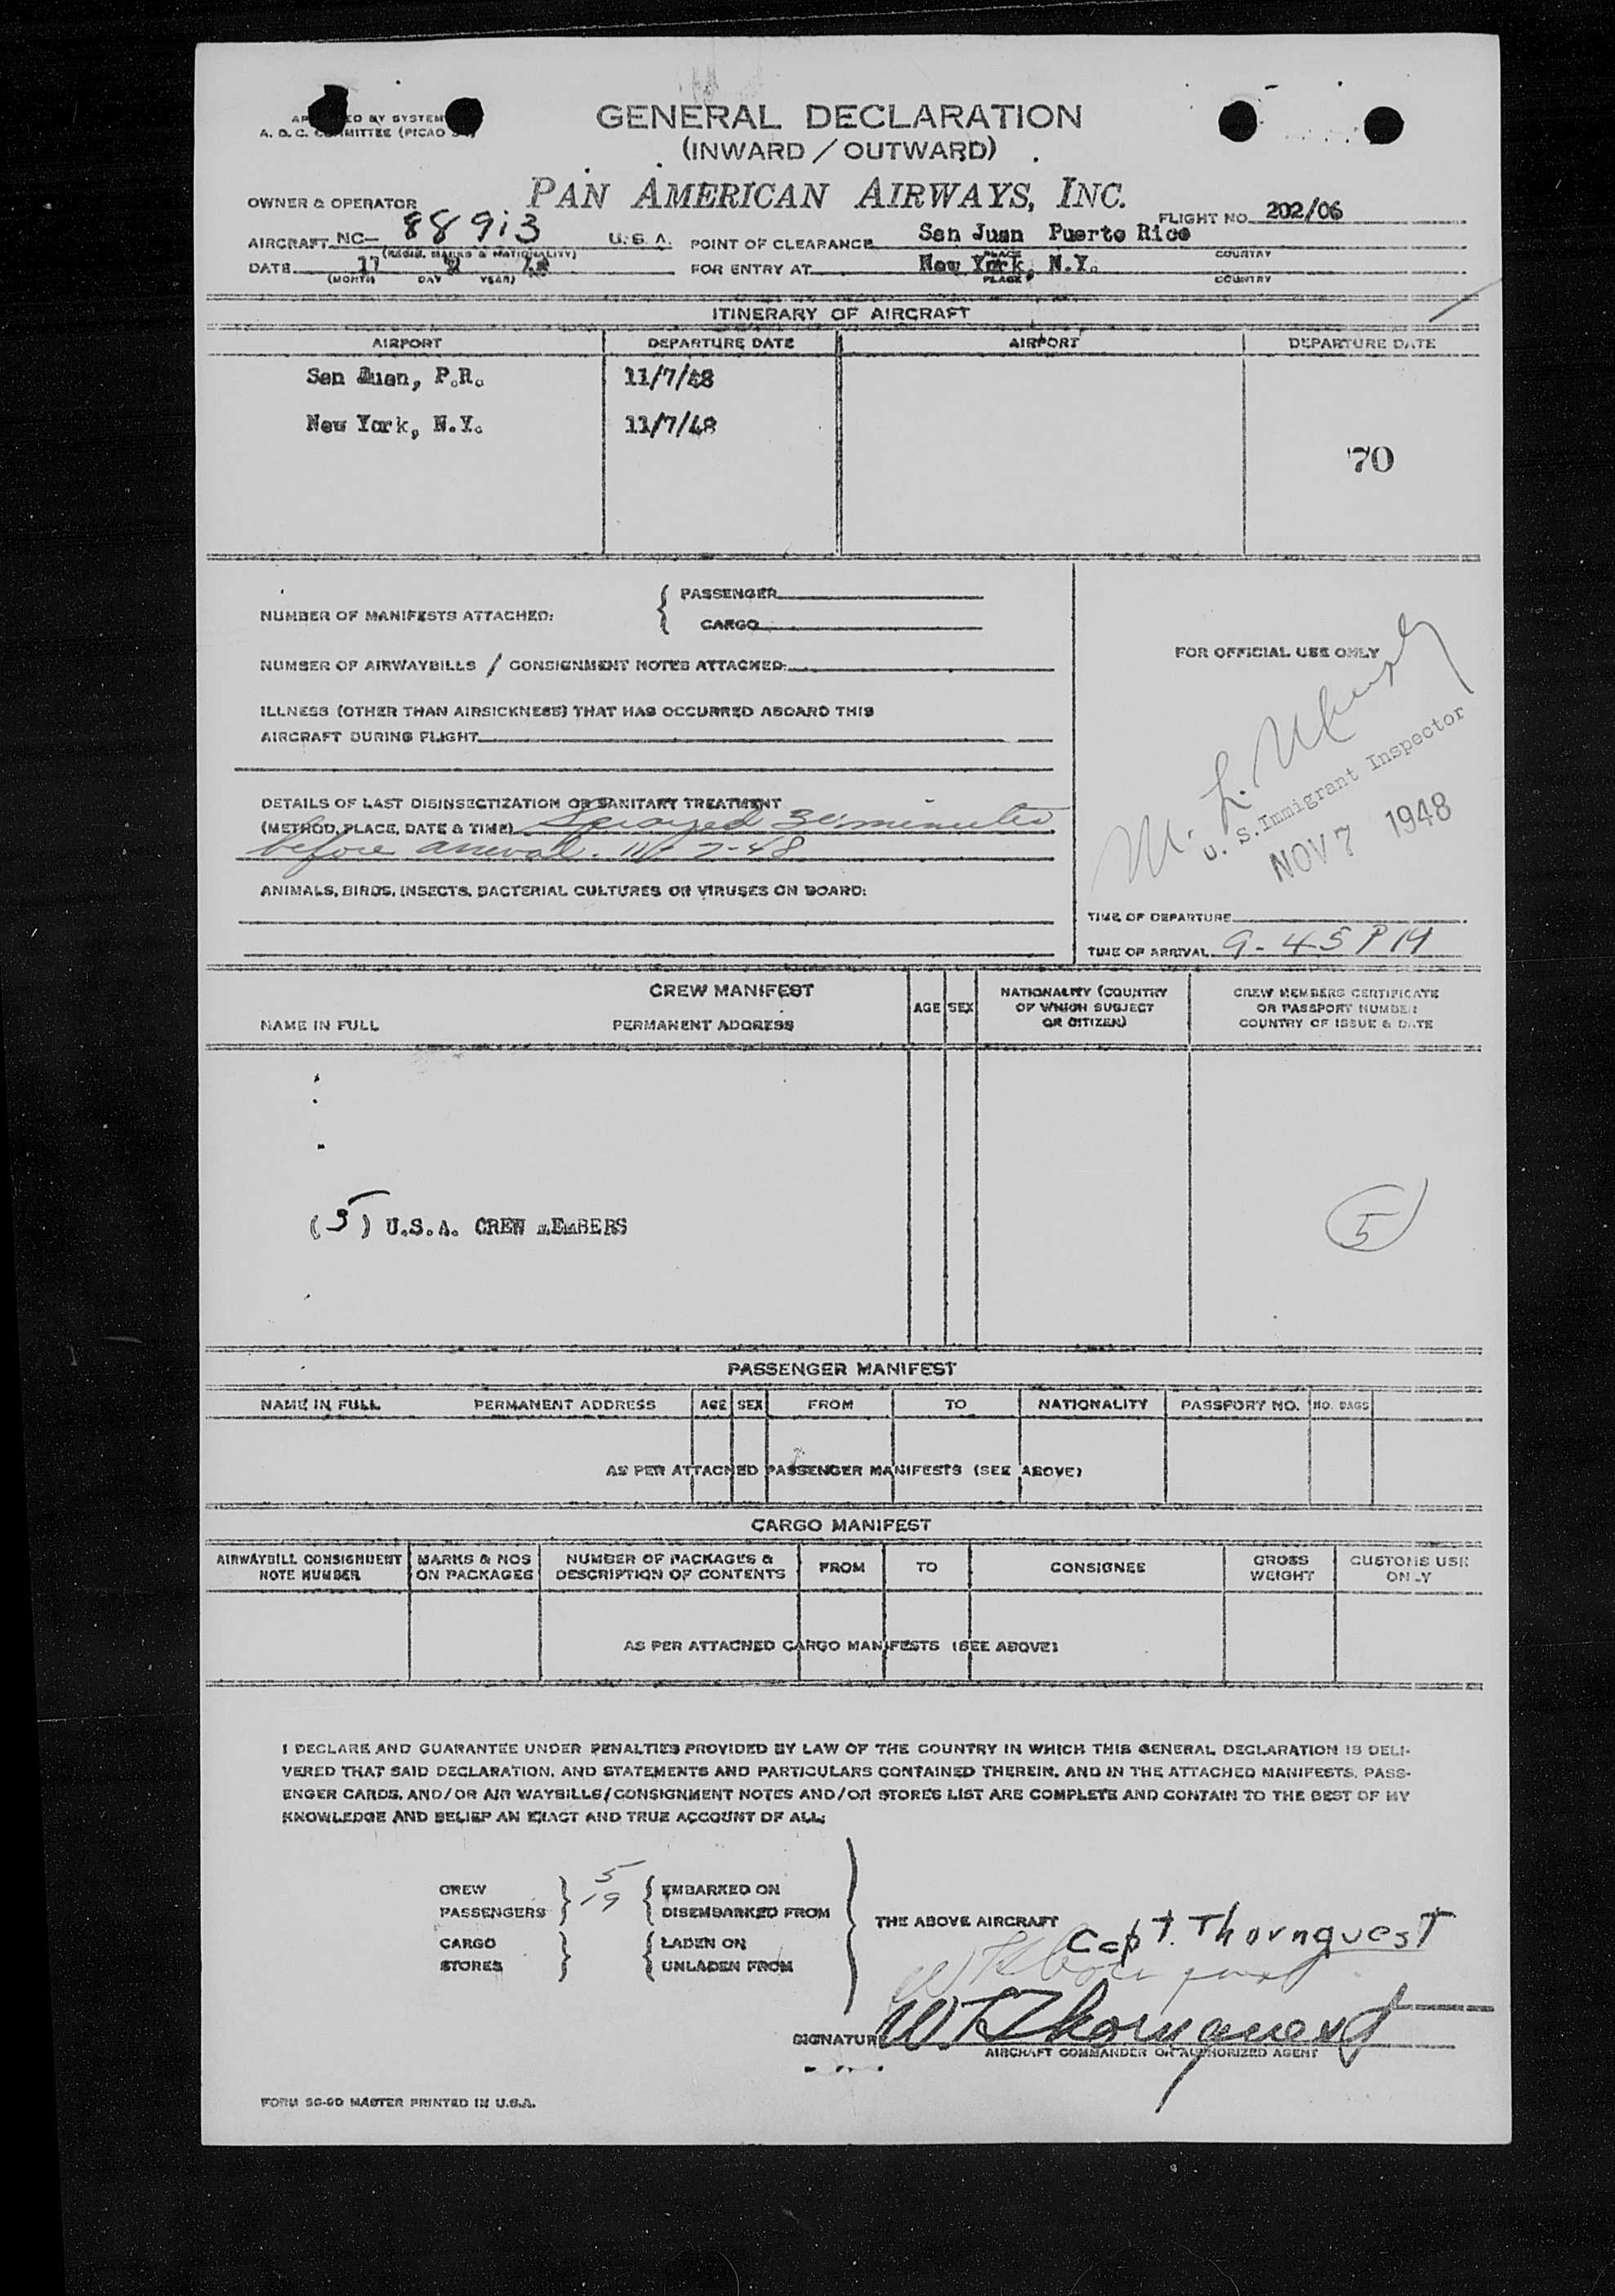 GENERAL DECLARATION
(INWARD / OUTWARD)
A. D. C. COMMITTEE (PICAO
OWNER & OPERATOR PAN AMERICAN AIRWAYS, INC.
FLIGHT NO. 202/06
AIRCRAFT NC- 88913 U. S. A. POINT OF CLEARANCE San Juan Puerto Rico
(REGIS. MARKS & NATIONALITY) PLACE COUNTRY
DATE 11 FOR ENTRY AT New York, N.Y.
(MONTH DAY YEAR) PLACE COUNTRY
ITINERARY OF AIRCRAFT
AIRPORT DEPARTURE DATE AIRPORT DEPARTURE DATE
San Juan, P.R. 11/7/48
New York, N.Y. 11/7/48
70
NUMBER OF MANIFESTS ATTACHED: PASSENGER
CARGO
FOR OFFICIAL USE ONLY
NUMBER OF AIRWAYBILLS / CONSIGNMENT NOTES ATTACHED:
ILLNESS (OTHER THAN AIRSICKNESS) THAT HAS OCCURRED ABOARD THIS
AIRCRAFT DURING FLIGHT
M. L.
U. S. Immigrant Inspector
NOV 7 1948
DETAILS OF LAST DISINSECTIZATION OR SANITARY TREATMENT
(METHOD, PLACE, DATE & TIME) Sprayed 30 minutes
before arrival. 11-7-48
ANIMALS, BIRDS, INSECTS, BACTERIAL CULTURES OR VIRUSES ON BOARD:
TIME OF DEPARTURE
TIME OF ARRIVAL 9-45 PM
CREW MANIFEST
NAME IN FULL PERMANENT ADDRESS AGE SEX NATIONALITY (COUNTRY OF WHICH SUBJECT OR CITIZEN) CREW MEMBERS CERTIFICATE OR PASSPORT NUMBER COUNTRY OF ISSUE & DATE
(5) U.S.A. CREW MEMBERS 5
PASSENGER MANIFEST
NAME IN FULL PERMANENT ADDRESS AGE SEX FROM TO NATIONALITY PASSPORT NO. NO. BAGS
AS PER ATTACHED PASSENGER MANIFESTS (SEE ABOVE)
CARGO MANIFEST
AIRWAYBILL CONSIGNMENT NOTE NUMBER MARKS & NOS ON PACKAGES NUMBER OF PACKAGES & DESCRIPTION OF CONTENTS FROM TO CONSIGNEE GROSS WEIGHT CUSTOMS USE ONLY
AS PER ATTACHED CARGO MANIFESTS (SEE ABOVE)
I DECLARE AND GUARANTEE UNDER PENALTIES PROVIDED BY LAW OF THE COUNTRY IN WHICH THIS GENERAL DECLARATION IS DELI-
VERED THAT SAID DECLARATION, AND STATEMENTS AND PARTICULARS CONTAINED THEREIN, AND IN THE ATTACHED MANIFESTS, PASS-
ENGER CARDS, AND/OR AIR WAYBILLS/CONSIGNMENT NOTES AND/OR STORES LIST ARE COMPLETE AND CONTAIN TO THE BEST OF MY
KNOWLEDGE AND BELIEF AN EXACT AND TRUE ACCOUNT OF ALL:
CREW 5 EMBARKED ON
PASSENGERS 19 DISEMBARKED FROM
THE ABOVE AIRCRAFT Capt. Thornquest
CARGO LADEN ON
STORES UNLADEN FROM
SIGNATURE W H Thornquest
AIRCRAFT COMMANDER OR AUTHORIZED AGENT
FORM SC-9D MASTER PRINTED IN U.S.A.